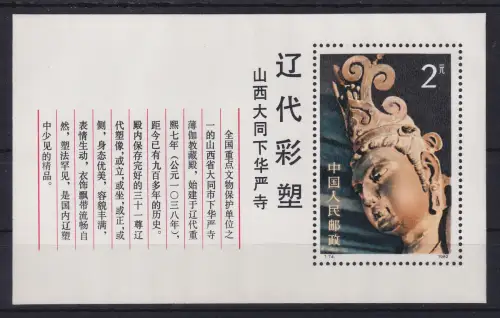 辽代彩塑
山西大同下华严寺
全国重点文物保护单位之
一的山西省大同市下华严寺
薄伽教藏殿，始建于辽代重
熙七年（公元一〇三八年），
距今已有九百多年的历史。
殿内保存完好的三十一尊辽
代塑像，或立，或坐，或正，或
侧，身态优美，容貌丰满，
表情生动，衣饰飘带流畅自
然，塑法罕见，是国内辽塑
中少见的精品。
2元
中国人民邮政
T.74
1982